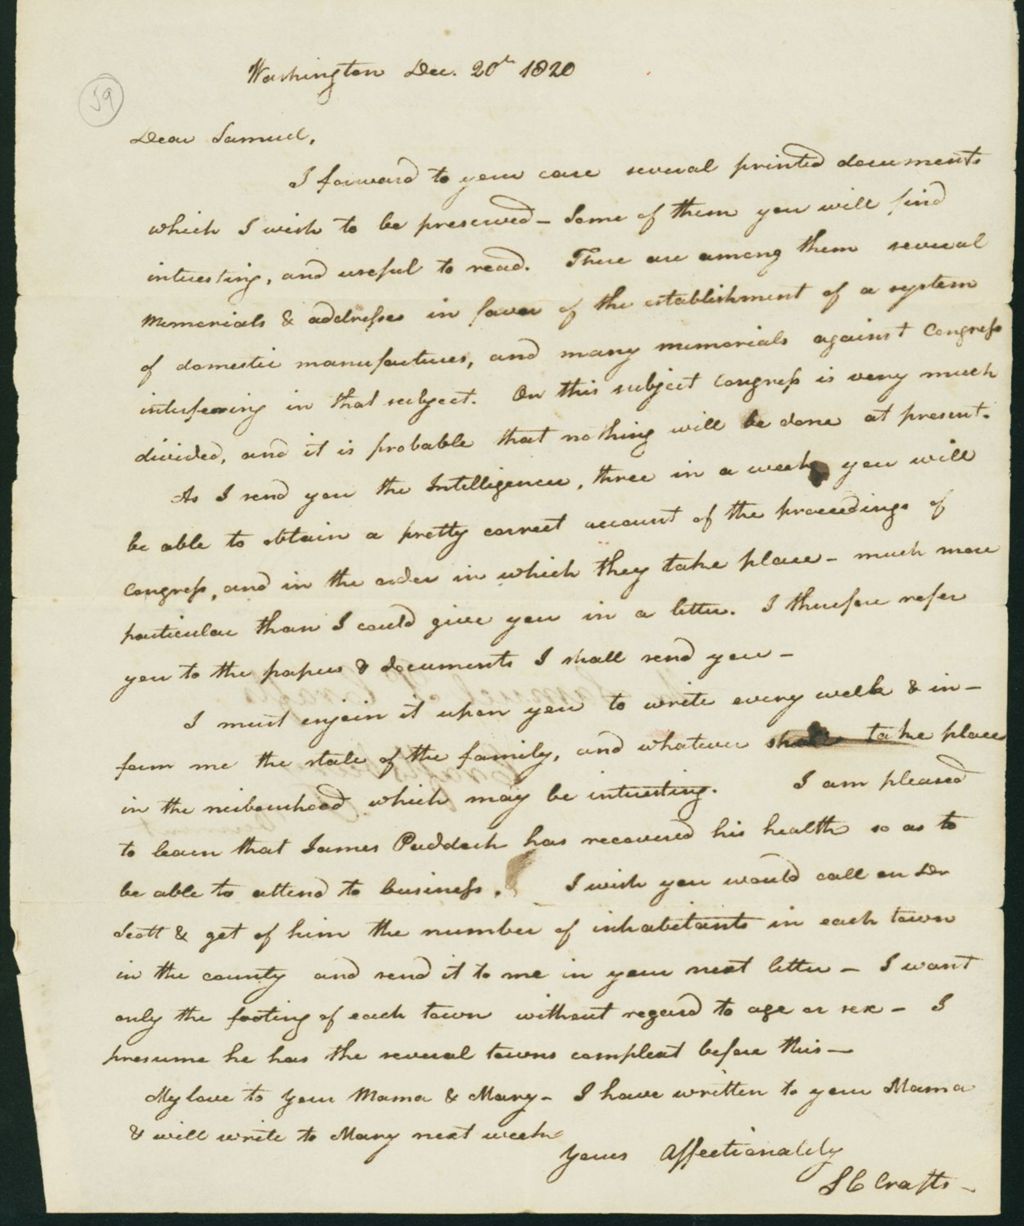 59
Washington Dec. 20th 1820
Dear Samuel,
I forward to your care several printed documents
which I wish to be preserved - Some of them you will find
interesting, and useful to read. There are among them several
Memorials & addresses in favor of the establishment of a system
of domestic manufactures, and many memorials against Congress
interfering in that subject. On this subject Congress is very much
divided, and it is probable that nothing will be done at present.
As I send you the Intelligencer, three in a week, you will
be able to obtain a pretty correct account of the proceedings of
Congress, and in the order in which they take place - much more
particular than I could give you in a letter. I therefore refer
you to the papers & documents I shall send you -
I must enjoin it upon you to write every week & in-
form me the state of the family, and whatever shall take place
in the neibourhood which may be interesting. I am pleased
to learn that James Paddock has recovered his health so as to
be able to attend to business. I wish you would call on Dr
Scott & get of him the number of inhabitants in each town
in the county and send it to me in your next letter - I want
only the footing of each town without regard to age or sex - I
presume he has the several towns compleat before this -
My love to your Mama & Mary - I have written to your Mama
& will write to Mary next week
Yours Affectionately
S C Crafts -